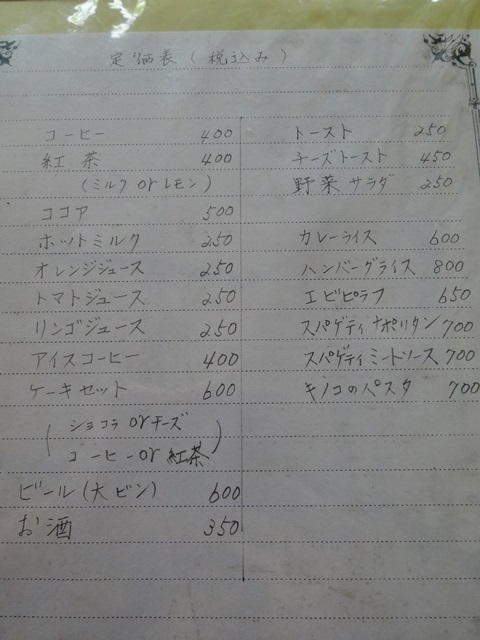 定価表(税込み)
コーヒー 400
紅茶 400
(ミルク or レモン)
ココア 500
ホットミルク 250
オレンジジュース 250
トマトジュース 250
リンゴジュース 250
アイスコーヒー 400
ケーキセット 600
(ショコラ or チーズ
コーヒー or 紅茶)
ビール(大ビン) 600
お酒 350
トースト 250
チーズトースト 450
野菜サラダ 250
カレーライス 600
ハンバーグライス 800
エビピラフ 650
スパゲティナポリタン 700
スパゲティミートソース 700
キノコのパスタ 700